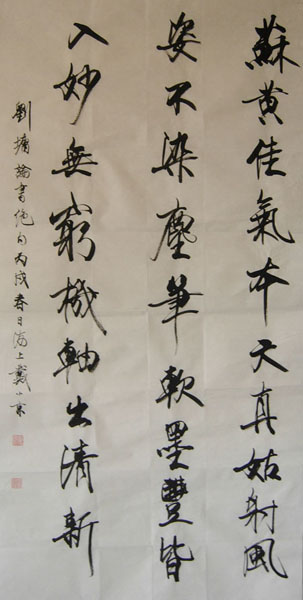 蘇黃佳氣本天真姑射風
姿不染塵筆軟墨豐皆
入妙無窮機軸出清新
劉墉論書絕句丙戌春日海上戴小京